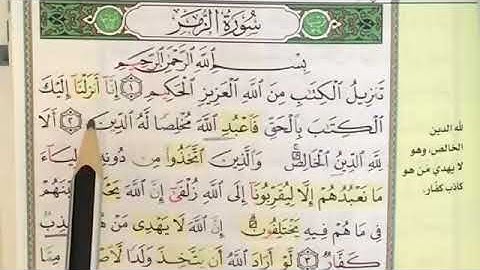 سُورَةُ الزُّمَرِ
بِسْمِ اللَّهِ الرَّحْمَٰنِ الرَّحِيمِ
تَنزِيلُ الْكِتَابِ مِنَ اللَّهِ الْعَزِيزِ الْحَكِيمِ ١ إِنَّا أَنزَلْنَا إِلَيْكَ
الْكِتَابَ بِالْحَقِّ فَاعْبُدِ اللَّهَ مُخْلِصًا لَّهُ الدِّينَ ٢ أَلَا
لِلَّهِ الدِّينُ الْخَالِصُ وَالَّذِينَ اتَّخَذُوا مِن دُونِهِ
مَا نَعْبُدُهُمْ إِلَّا لِيُقَرِّبُونَا إِلَى اللَّهِ زُلْفَىٰ إِنَّ اللَّهَ
فِي مَا هُمْ فِيهِ يَخْتَلِفُونَ إِنَّ اللَّهَ لَا يَهْدِي مَنْ هُوَ
كَفَّارٌ ٣ لَّوْ أَرَادَ اللَّهُ أَن يَتَّخِذَ وَلَدًا
لله الدين
الخالص، وهو
لا يهدي من هو
كاذب كفّار.